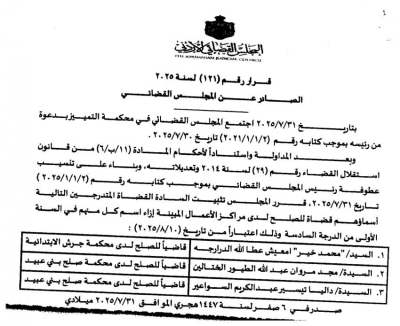 ٤
المجلس القضائي الأردني
THE JORDANIAN JUDICIAL COUNCIL
قرار رقم (١٢١) لسنة ٢٠٢٥
الصادر عن المجلس القضائي
بتاريخ ٢٠٢٥/٧/٣١ اجتمع المجلس القضائي في محكمة التمييز بدعوة
من رئيسه بموجب كتابه رقم (٢٠٢١/١/١/٢) تاريخ ٢٠٢٥/٧/٣٠.
وبعد المداولة واستناداً لأحكام المادة (١١/ب/٦) من قانون
استقلال القضاء رقم (٢٩) لسنة ٢٠١٤ وتعديلاته، وبناء على تنسيب
عطوفة رئيس المجلس القضائي بموجب كتابه رقم (٢٠٢٥/١/١/٢)
تاريخ ٢٠٢٥/٧/٣١، قرر المجلس تثبيت السادة القضاة المتدرجين التالية
أسماؤهم قضاة للصلح لدى مراكز الأعمال المبينة إزاء اسم كل منهم في السنة
من الدرجة السادسة وذلك اعتباراً من تاريخ (٢٠٢٥/٨/١٠):
١. السيد/ "محمد خير" امعيش عطا الله الدرارجه قاضياً للصلح لدى محكمة جرش الابتدائية
٢. السيدة/ مجد مروان عبد الله الطيور الختالين قاضياً للصلح لدى محكمة صلح بني عبيد
٣. السيدة/ داليا تيسير عبدالكريم السواعير قاضياً للصلح لدى محكمة صلح بني عبيد
صدر في ٦ صفر لسنة ١٤٤٧ هجري الموافق ٢٠٢٥/٧/٣١ ميلادي